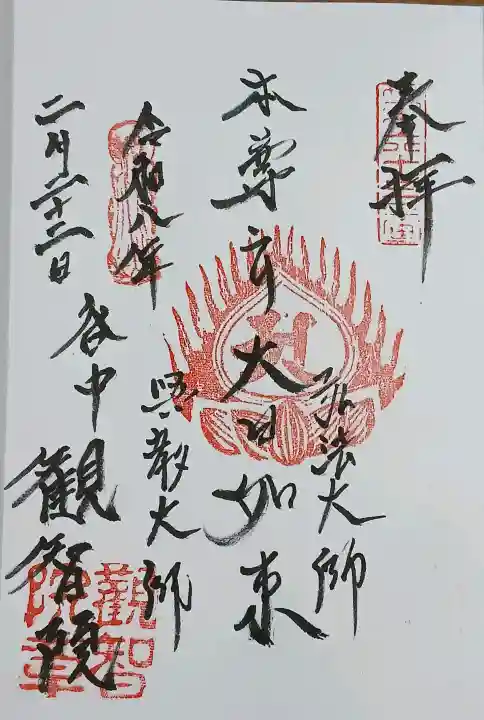 奉拝
弘法大師
本尊 大日如来
興教大師
令和八年
二月二十二日
谷中 觀智院
觀智院章